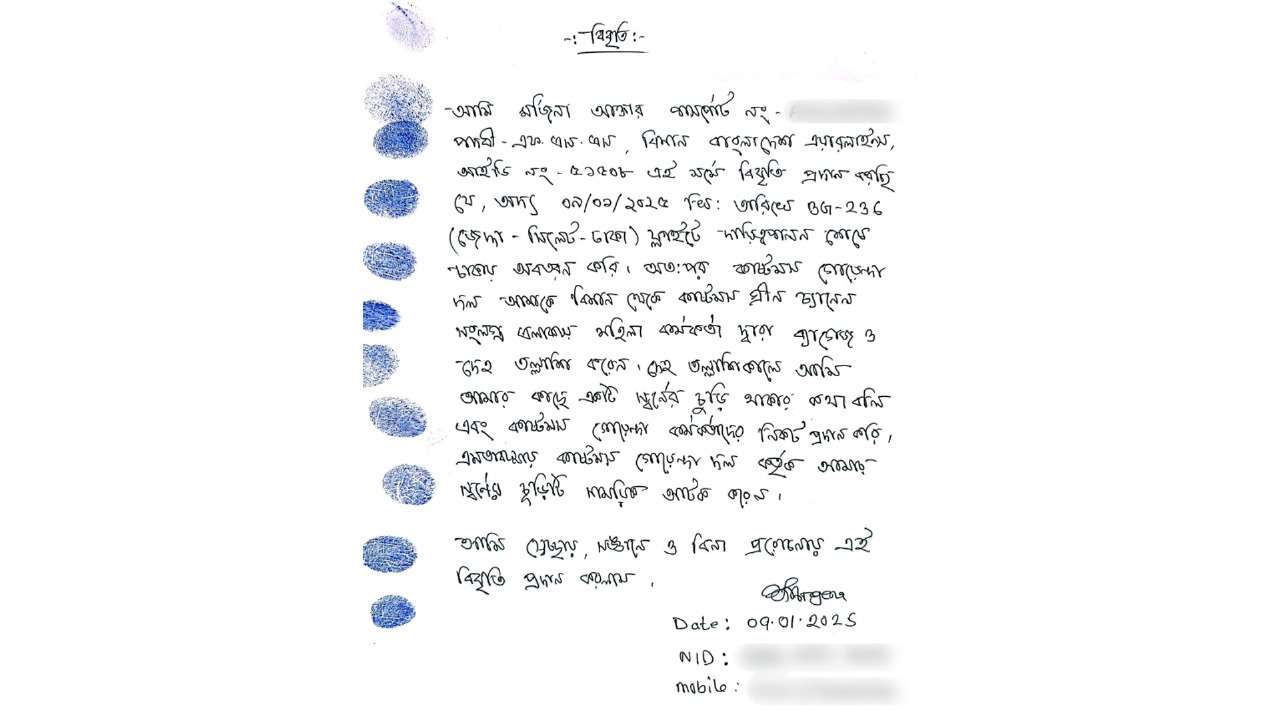 -: বিবৃতি :-
আমি মর্জিনা আক্তার পাসপোর্ট নং-
পদবী - এফ. এস. এস, বিমান বাংলাদেশ এয়ারলাইন্স,
আইডি নং - ৫১৫০৮ এই মর্মে বিবৃতি প্রদান করছি
যে, অদ্য ০৯/০১/২০২৫ খ্রি: তারিখে BG-236
(জেদ্দা - সিলেট - ঢাকা) ফ্লাইটে দায়িত্বপালন শেষে
ঢাকায় অবতরন করি। অত:পর কাস্টমস গোয়েন্দা
দল আমাকে বিমান থেকে কাস্টমস গ্রীন চ্যানেল
সংলগ্ন এলাকায় মহিলা কর্মকর্তা দ্বারা ব্যাগেজ ও
দেহ তল্লাশি করেন। দেহ তল্লাশিকালে আমি
আমার কাছে একটি স্বর্নের চুড়ি থাকার কথা বলি
এবং কাস্টমস গোয়েন্দা কর্মকর্তাদের নিকট প্রদান করি,
এমতাবস্থায় কাস্টমস গোয়েন্দা দল কর্তৃক আমার
স্বর্নের চুড়িটি সাময়িক আটক করেন।
আমি স্বেচ্ছায়, সজ্ঞানে ও বিনা প্ররোচনায় এই
বিবৃতি প্রদান করলাম।
Date: 09.01.2025
NID:
mobile: